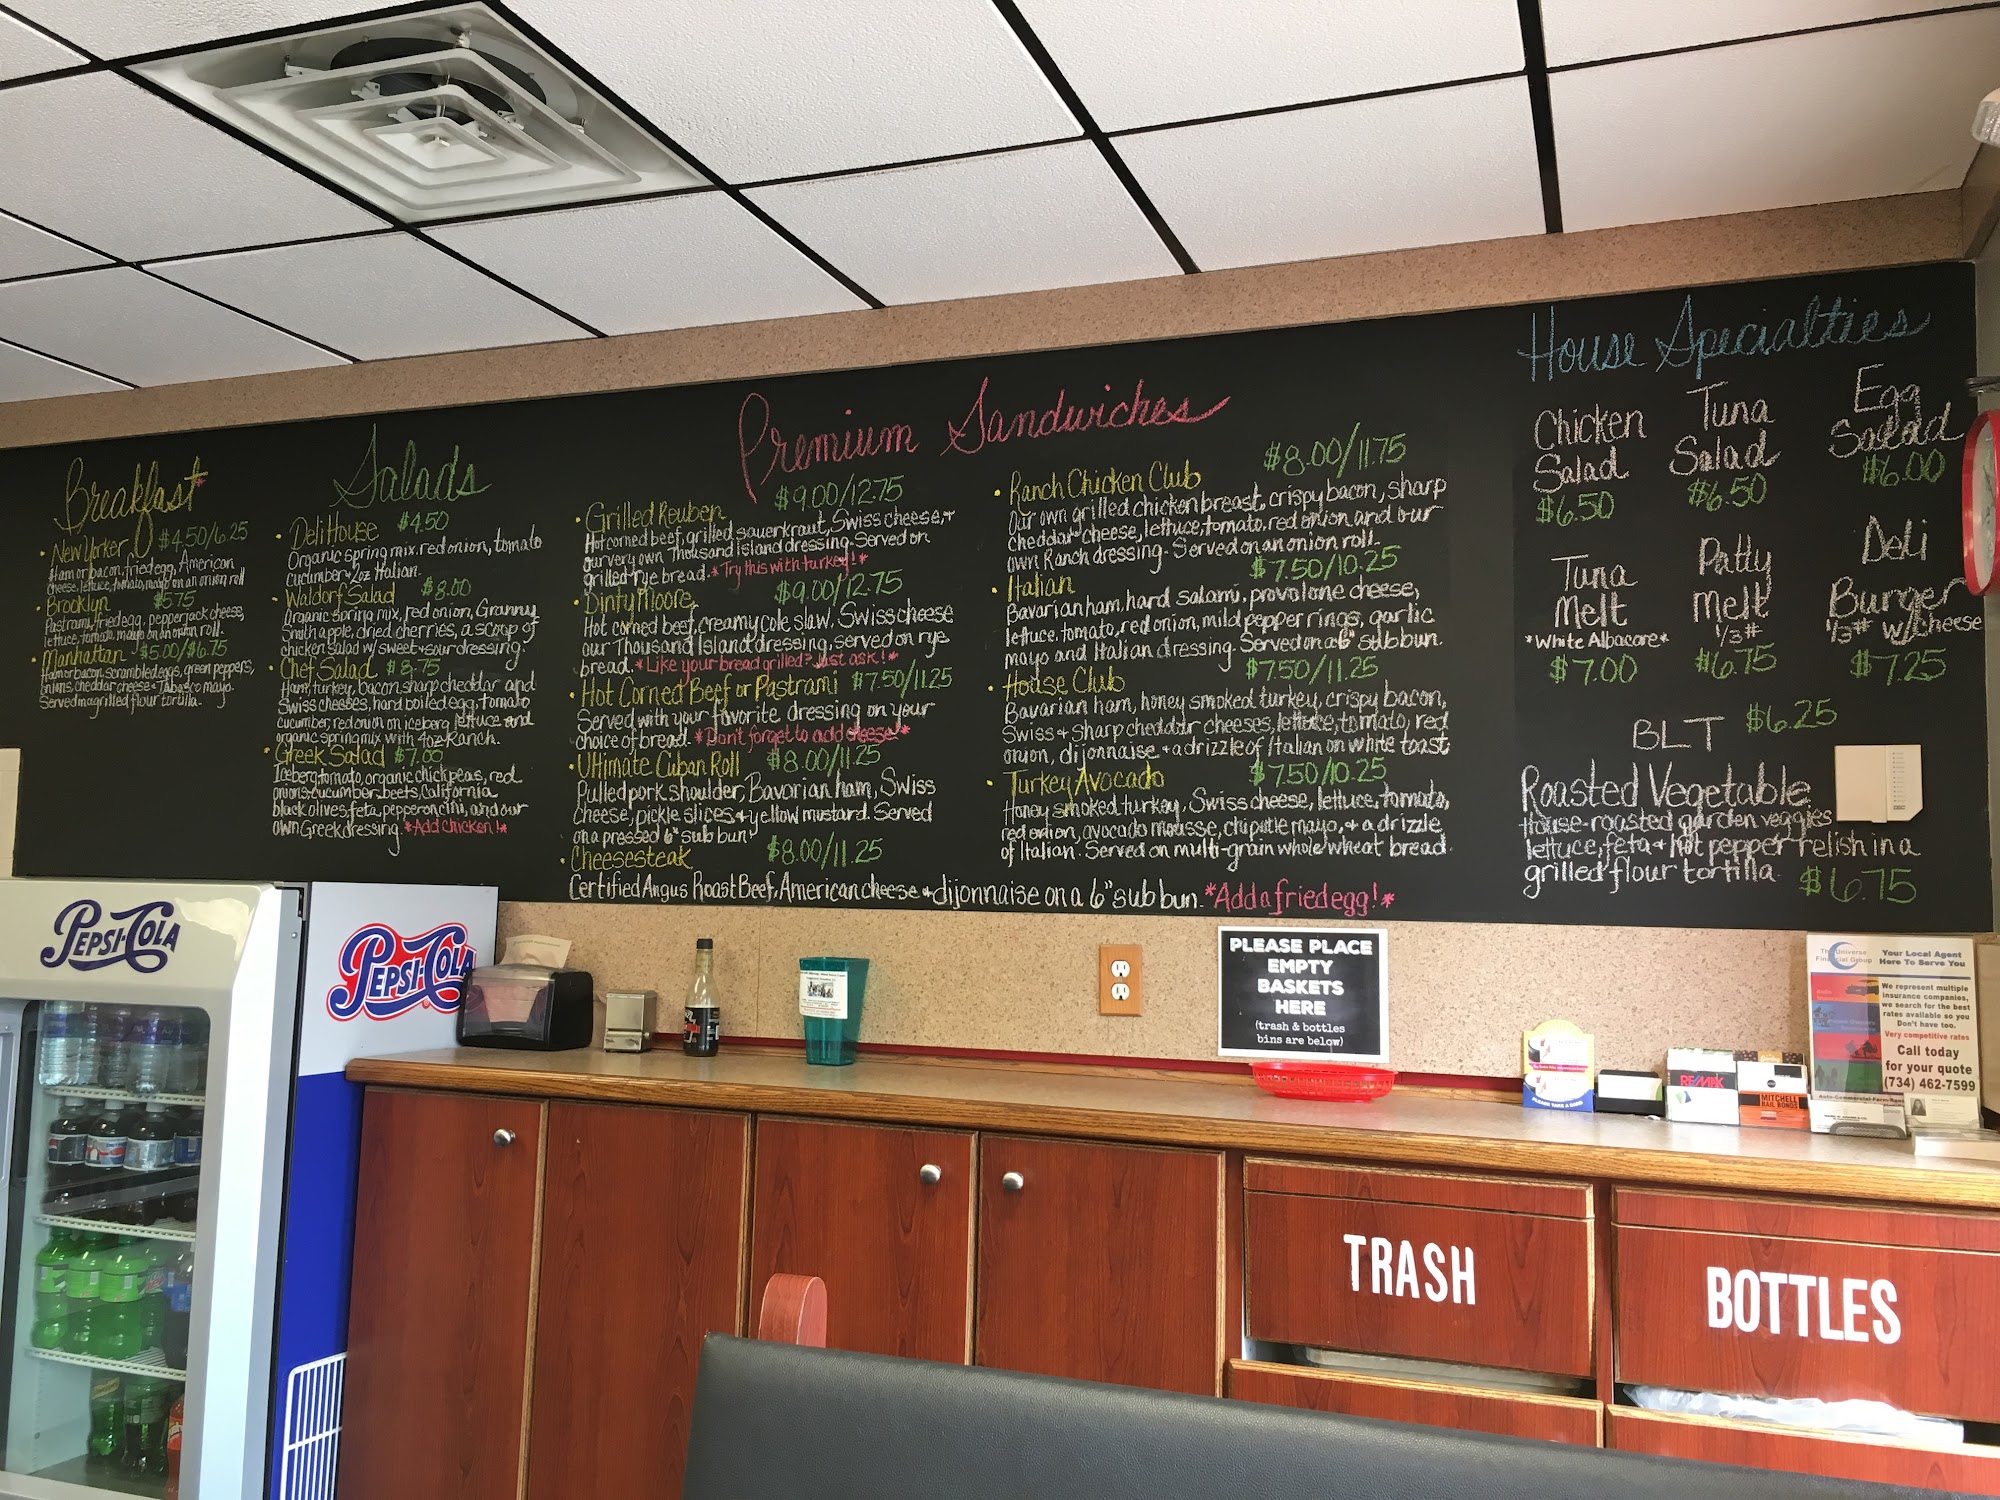 Breakfast*
• New Yorker $4.50/6.25
Ham or bacon, fried egg, American
cheese, lettuce, tomato, mayo on an onion roll
• Brooklyn $5.75
Pastrami, fried egg, pepperjack cheese,
lettuce, tomato, mayo on an onion roll.
• Manhattan $5.00/$6.75
Ham or bacon, scrambled eggs, green peppers,
onions, cheddar cheese + Tabasco mayo.
Served in a grilled flour tortilla.
Salads
• Deli House $4.50
Organic spring mix, red onion, tomato
cucumber + 2oz Italian.
• Waldorf Salad $8.00
Organic spring mix, red onion, Granny
Smith apple, dried cherries, a scoop of
chicken salad w/ sweet + sour dressing.
• Chef Salad $8.75
Ham, turkey, bacon, sharp cheddar and
Swiss cheeses, hard boiled egg, tomato
cucumber, red onion on iceberg lettuce and
organic spring mix with 4oz Ranch.
• Greek Salad $7.00
Iceberg, tomato, organic chick peas, red
onions, cucumber, beets, California
black olives, feta, pepperoncini, and our
own Greek dressing. *Add chicken!*
Premium Sandwiches
• Grilled Reuben $9.00/12.75
Hot corned beef, grilled sauerkraut, Swiss cheese, +
our very own Thousand Island dressing. Served on
grilled rye bread. *Try this with turkey!*
• Dinty Moore $9.00/12.75
Hot corned beef, creamy cole slaw, Swiss cheese
our Thousand Island dressing, served on rye
bread. *Like your bread grilled? Just ask!*
• Hot Corned Beef or Pastrami $7.50/11.25
Served with your favorite dressing on your
choice of bread. *Don't forget to add cheese*
• Ultimate Cuban Roll $8.00/11.25
Pulled pork shoulder, Bavarian ham, Swiss
cheese, pickle slices + yellow mustard. Served
on a pressed 6" sub bun
• Cheesesteak $8.00/11.25
Certified Angus Roast Beef, American cheese + dijonnaise on a 6" sub bun. *Add a fried egg!*
• Ranch Chicken Club $8.00/11.75
Our own grilled chicken breast, crispy bacon, sharp
cheddar cheese, lettuce, tomato, red onion and our
own Ranch dressing. Served on an onion roll.
• Italian $7.50/10.25
Bavarian ham, hard salami, provolone cheese,
lettuce, tomato, red onion, mild pepper rings, garlic
mayo and Italian dressing. Served on a 6" sub bun.
• House Club $7.50/11.25
Bavarian ham, honey smoked turkey, crispy bacon,
Swiss + Sharp cheddar cheeses, lettuce, tomato, red
onion, dijonnaise + a drizzle of Italian on white toast
• Turkey Avocado $7.50/10.25
Honey smoked turkey, Swiss cheese, lettuce, tomato,
red onion, avocado mousse, chipotle mayo, + a drizzle
of Italian. Served on multi-grain whole wheat bread.
House Specialties
Chicken Salad $6.50
Tuna Salad $6.50
Egg Salad $6.00
Tuna Melt *White Albacore* $7.00
Patty Melt 1/3# $6.75
Deli Burger 1/3# w/cheese $7.25
BLT $6.25
Roasted Vegetable
House-roasted garden veggies
lettuce, feta + hot pepper relish in a
grilled flour tortilla. $6.75
PEPSI-COLA
PEPSI-COLA
PLEASE PLACE
EMPTY
BASKETS
HERE
(trash & bottles
bins are below)
The Universe
Financial Group
Your Local Agent
Here To Serve You
We represent multiple
insurance companies,
we search for the best
rates available so you
Don't have too.
Very competitive rates
Call today
for your quote
(734) 462-7599
PLEASE TAKE A CARD
RE/MAX
MITCHELL
BAIL BONDS
TRASH
BOTTLES